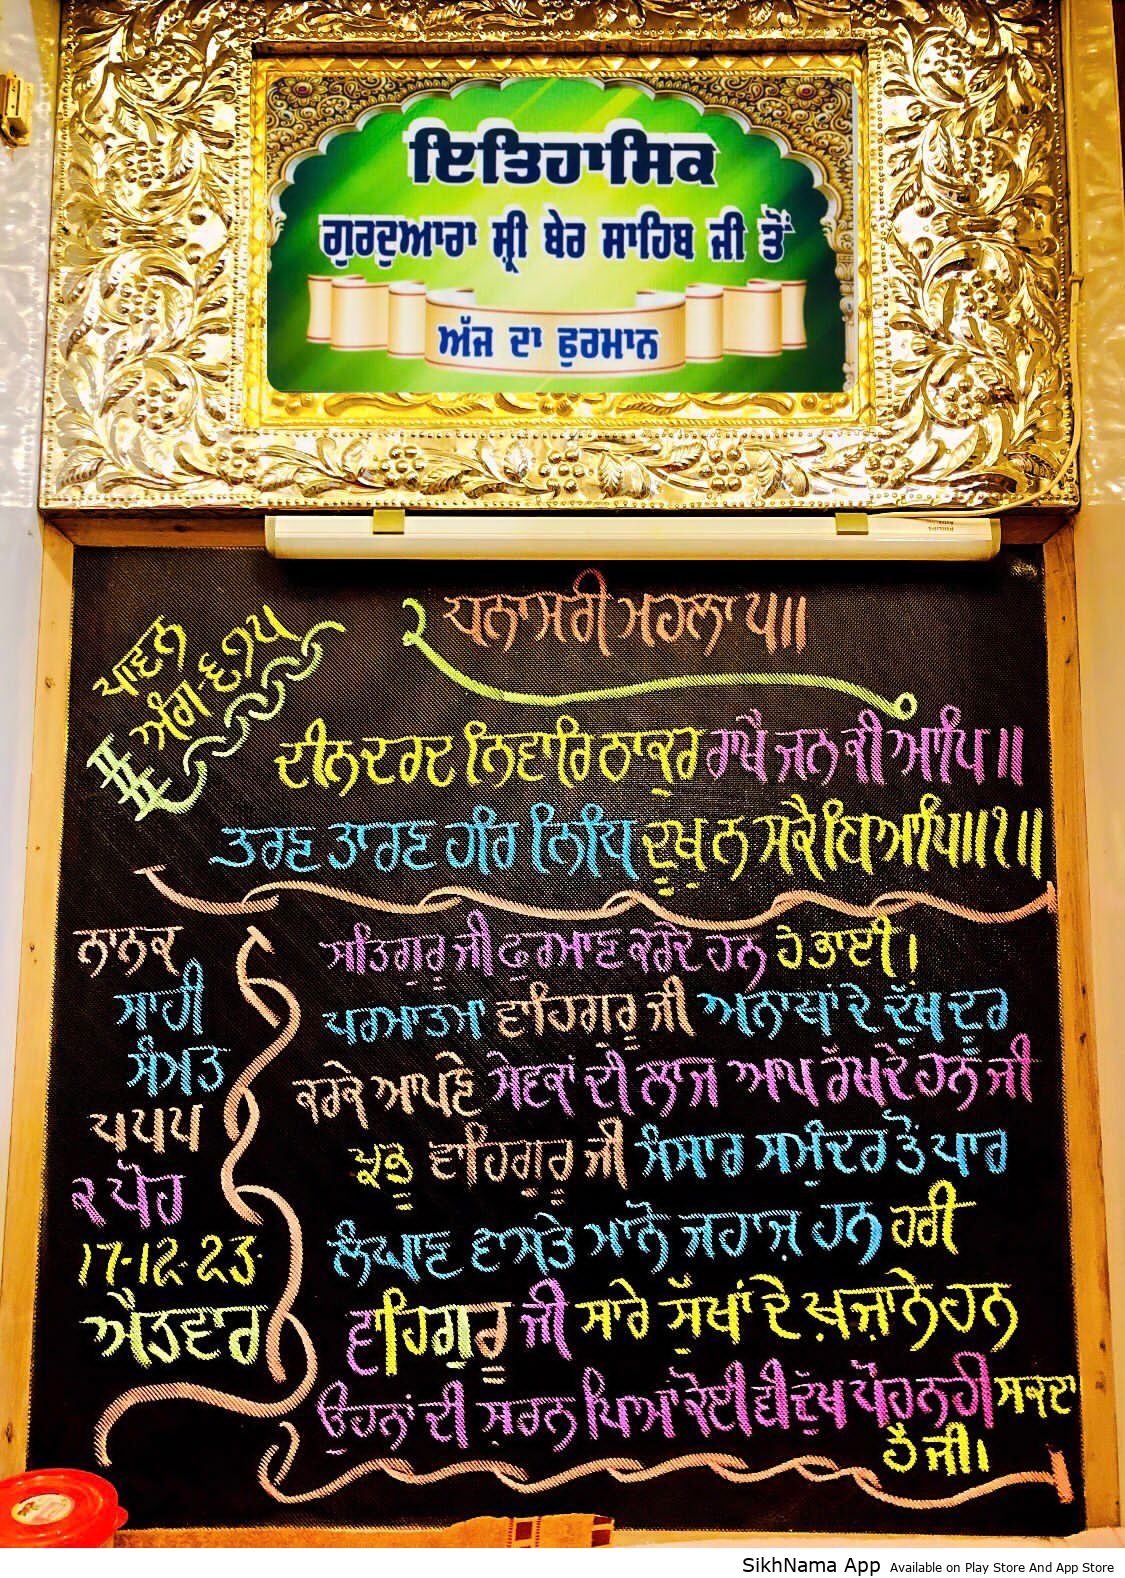 ਇਤਿਹਾਸਿਕ
ਗੁਰਦੁਆਰਾ ਸ਼੍ਰੀ ਬੇਰ ਸਾਹਿਬ ਜੀ ਤੋਂ
ਅੱਜ ਦਾ ਫੁਰਮਾਨ
ਧਨਾਸਰੀ ਮਹਲਾ ੫॥
ਪਾਵਨ
ਅੰਗ-੬੭੫
ਦੀਨ ਦਰਦ ਨਿਵਾਰਿ ਠਾਕੁਰ ਰਾਖੈ ਜਨ ਕੀ ਆਪਿ॥
ਤਰਣ ਤਾਰਣ ਹਰਿ ਨਿਧਿ ਦੂਖੁ ਨ ਸਕੈ ਬਿਆਪਿ॥੧॥
ਨਾਨਕ
ਸਾਹੀ
ਸੰਮਤ
੫੫੫
੨ ਪੋਹ
17-12-23
ਐਤਵਾਰ
ਸਤਿਗੁਰੂ ਜੀ ਫੁਰਮਾਣ ਕਰਦੇ ਹਨ ਹੇ ਭਾਈ।
ਪਰਮਾਤਮਾ ਵਾਹਿਗੁਰੂ ਜੀ ਅਨਾਥਾਂ ਦੇ ਦੁੱਖ ਦੂਰ
ਕਰਕੇ ਆਪਣੇ ਸੇਵਕਾਂ ਦੀ ਲਾਜ ਆਪ ਰੱਖਦੇ ਹਨ ਜੀ
ਪ੍ਰਭੂ ਵਾਹਿਗੁਰੂ ਜੀ ਸੰਸਾਰ ਸਮੁੰਦਰ ਤੋਂ ਪਾਰ
ਲੰਘਾਣ ਵਾਸਤੇ ਮਾਨੋ ਜਹਾਜ਼ ਹਨ ਹਰੀ
ਵਾਹਿਗੁਰੂ ਜੀ ਸਾਰੇ ਸੁੱਖਾਂ ਦੇ ਖ਼ਜ਼ਾਨੇ ਹਨ
ਉਹਨਾਂ ਦੀ ਸ਼ਰਨ ਪਿਆਂ ਕੋਈ ਵੀ ਦੁੱਖ ਪੋਹ ਨਹੀਂ ਸਕਦਾ
ਹੈ ਜੀ।
SikhNama App Available on Play Store And App Store